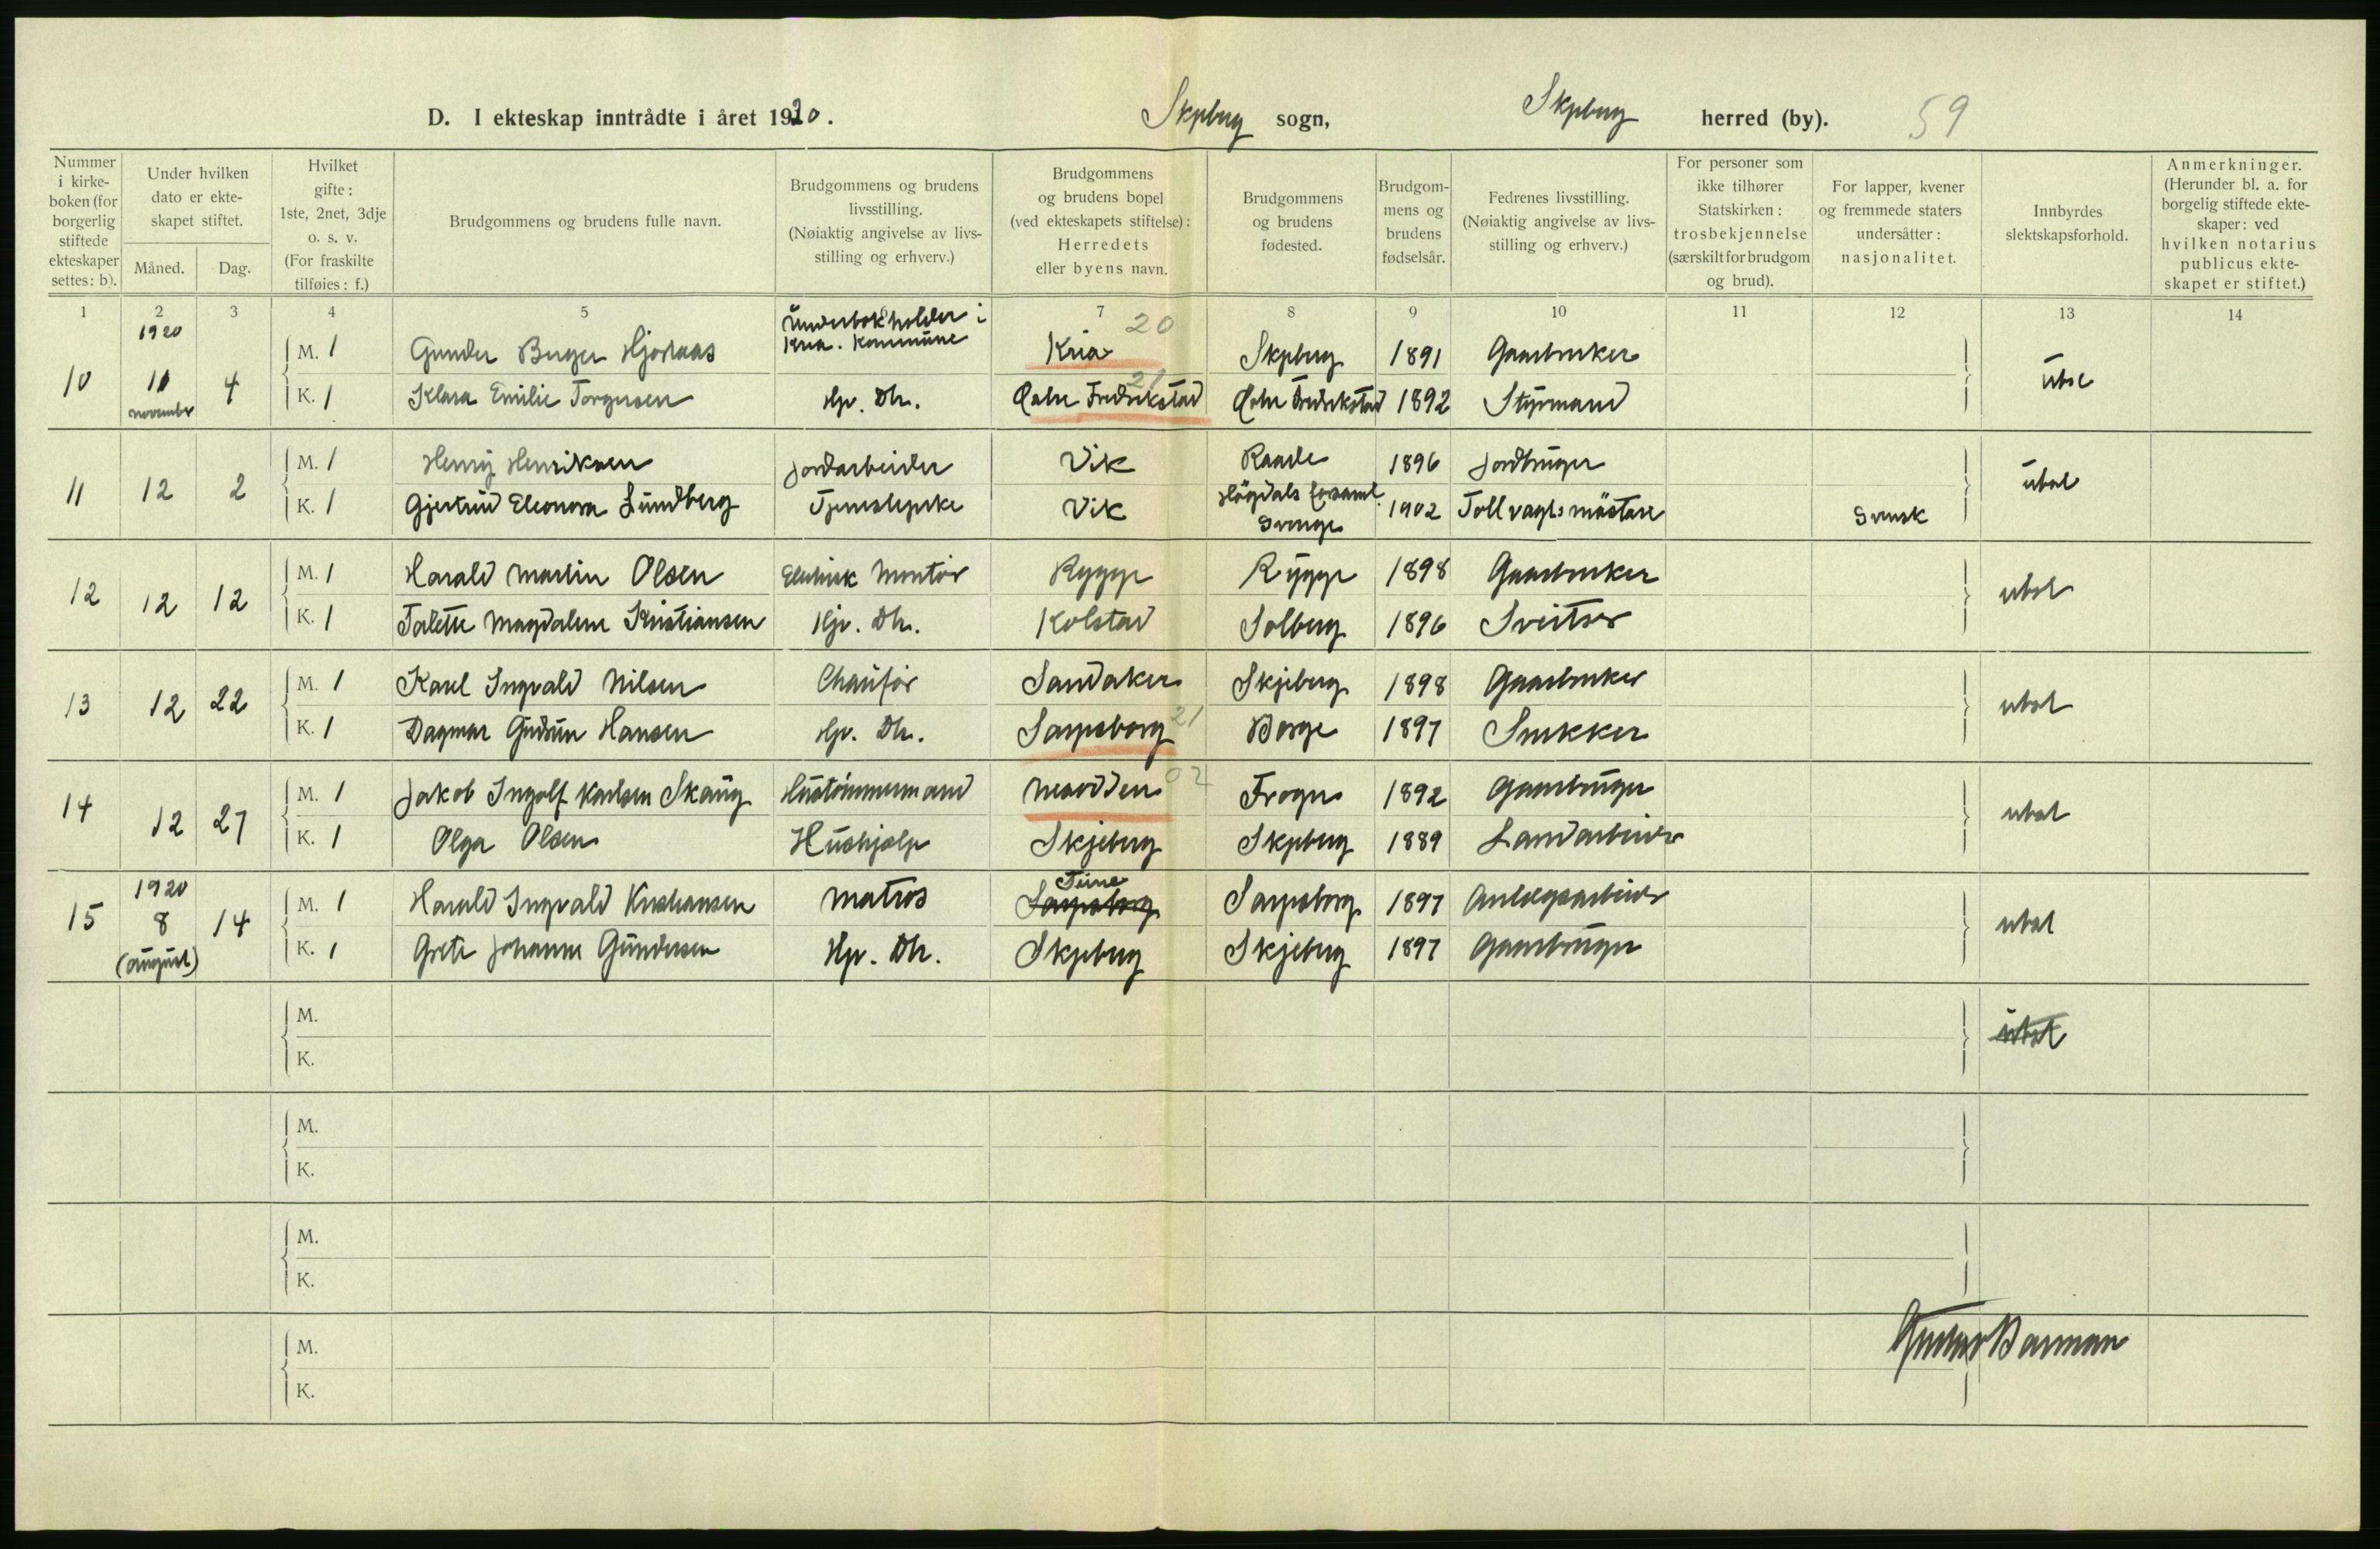 D. I ekteskap inntrådte i året 1920. Skjeberg sogn, Skjeberg herred (by). 59
Nummer i kirke-boken (for borgerlig stiftede ekteskaper settes: b).
Under hvilken dato er ekte-skapet stiftet.
Måned. Dag.
Hvilket gifte: 1ste, 2net, 3dje o. s. v. (For fraskilte tilføies: f.)
Brudgommens og brudens fulle navn.
Brudgommens og brudens livsstilling. (Nøiaktig angivelse av livs-stilling og erhverv.)
Brudgommens og brudens bopel (ved ekteskapets stiftelse): Herredets eller byens navn.
Brudgommens og brudens fødested.
Brudgom-mens og brudens fødselsår.
Fedrenes livsstilling. (Nøiaktig angivelse av livs-stilling og erhverv.)
For personer som ikke tilhører Statskirken: trosbekjennelse (særskilt for brudgom og brud).
For lapper, kvener og fremmede staters undersåtter: nasjonalitet.
Innbyrdes slektskapsforhold.
Anmerkninger. (Herunder bl. a. for borgelig stiftede ekte-skaper: ved hvilken notarius publicus ekte-skapet er stiftet.)
1 2 3 4 5 7 8 9 10 11 12 13 14
1920 Underbokholder i Kria. Kommune 20
10 11 november 4 M. 1 Gunder Birger Kria Skjeberg 1891 Gaardbruker
K. 1 Klara Emilie Torgersen Hj. Dtr. 21 Østre Fredrikstad Østre Fredrikstad 1892 Styrmand
11 12 2 M. 1 Henry Henriksen Jordarbeider Vik Raade 1896 Jordbruger ubesl
K. 1 Gjertrud Eleonora Lundberg Tjenestepike Vik Högdals forsaml. Sverige 1902 Tollvagtsmästare Svensk
12 12 12 M. 1 Harald Martin Olsen Elektrisk Montör Rygge Rygge 1898 Gaardbruker ubesl
K. 1 Talette Magdalene Kristiansen Hj. Dtr. Kolstad Solberg 1896 Sveitser
13 12 22 M. 1 Karl Ingvald Nilsen Chauför Sandaker Skjeberg 1898 Gaardbruker ubesl
K. 1 Dagmar Gudrun Hansen Hj. Dtr. Sarpsborg 21 Borge 1897 Snekker
14 12 27 M. 1 Jakob Ingolf Karlsen Skaug Hustömmermand Nesodden 02 Frogn 1892 Gaardbruger ubesl
K. 1 Olga Olsen Hushjelp Skjeberg Skjeberg 1889 Landarbeider
15 1920 8 (august) 14 M. 1 Harald Ingvald Kristiansen Matros Sarpsborg Tune Sarpsborg 1897 Anlegsarbeider ubesl
K. 1 Grete Johanne Gundersen Hj. Dtr. Skjeberg Skjeberg 1897 Gaardbruger
M. ubesl
K.
M.
K.
M.
K.
M.
K.